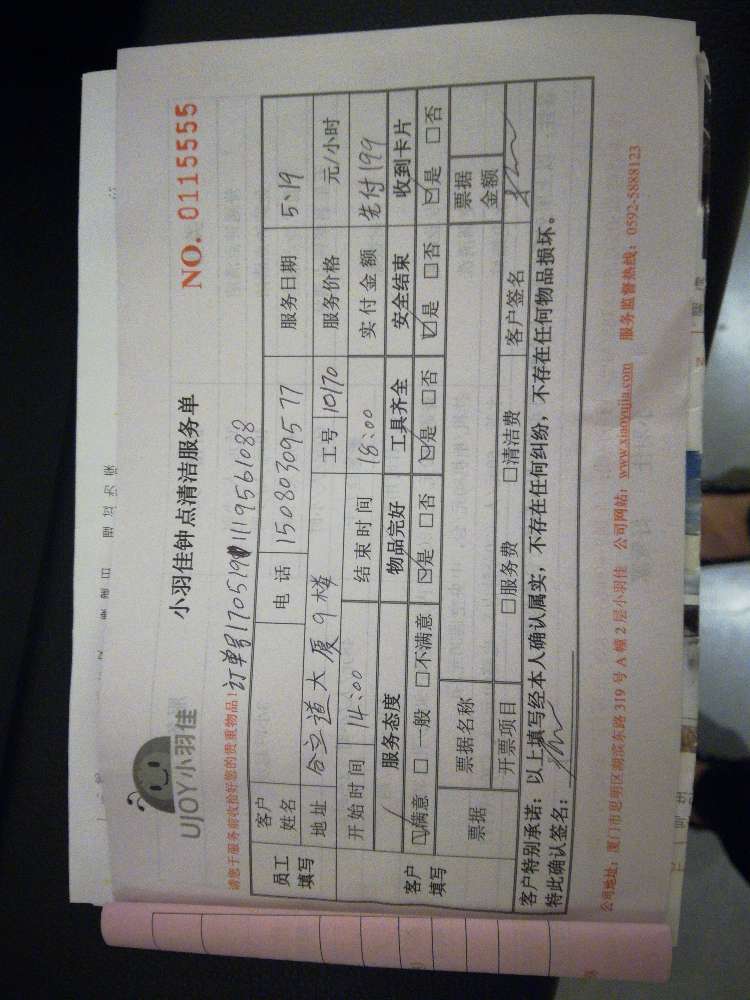 UJOY小羽佳
小羽佳钟点清洁服务单
NO. 0115555
请您于服务前收拾好您的贵重物品!
员工填写
客户姓名
电话 15080309577
服务日期 5、19
地址
大厦9楼
工号 10170
服务价格 元/小时
开始时间 14:00
结束时间 18:00
实付金额 先付199
客户填写
服务态度 物品完好 工具齐全 安全结束 收到卡片
☑满意 □一般 □不满意 ☑是 □否 ☑是 □否 ☑是 □否 ☑是 □否
票据 票据名称 票据金额
开票项目 □服务费 □清洁费 客户签名
客户特别承诺:以上填写经本人确认属实,不存在任何纠纷,不存在任何物品损坏。
特此确认签名:
公司地址:厦门市思明区湖滨东路 319 号 A 幢 2 层小羽佳 公司网站:www.xiaoyujia.com 服务监督热线:0592-5888123